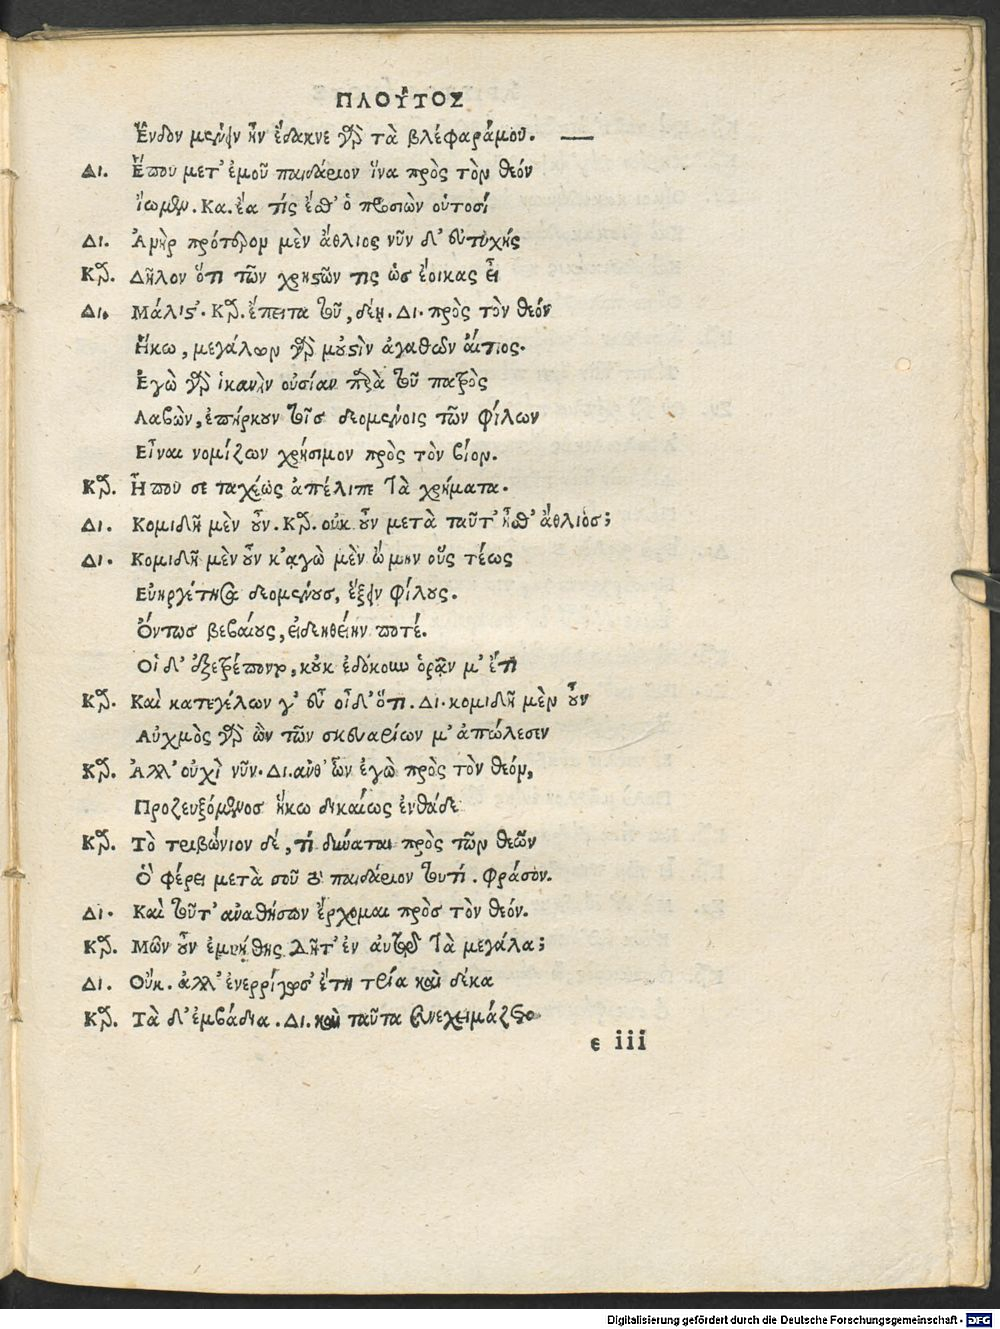 ΠΛΟΥ͂ΤΟΣ
Ἔνδον μένειν ἦν ἔδακνε γὰρ τὰ βλέφαράμου. —
Δι. Ἕπου μετ' ἐμοῦ παιδάριον ἵνα πρὸς τὸν θεόν
ἴωμεν. Κα. ἔα τίς ἔσθ' ὁ προσιὼν οὑτοσί
Δι. Ἀνὴρ πρότερον μὲν ἄθλιος νῦν δ' εὐτυχής
Κρ. Δῆλον ὅτι τῶν χρηστῶν τις ὡς ἔοικας εἶ
Δι. Μάλιστ'. Κρ. ἔπειτα τοῦ, δέῃ. Δι. πρὸς τὸν θεόν
Ἥκω, μεγάλων γὰρ μοὐστὶν ἀγαθῶν αἴτιος.
Ἐγὼ γὰρ ἱκανὴν οὐσίαν παρὰ τοῦ πατρὸς
Λαβὼν, ἐπήρκουν τοῖς δεομένοις τῶν φίλων
Εἶναι νομίζων χρήσιμον πρὸς τὸν βίον.
Κρ. Ἦ που σε ταχέως ἀπέλιπε τὰ χρήματα.
Δι. Κομιδῇ μὲν οὖν. Κρ. οὐκ οὖν μετὰ ταῦτ' ἦσθ' ἄθλιος;
Δι. Κομιδῇ μὲν οὖν κ'ἀγὼ μὲν ᾤμην οὓς τέως
Εὐηργέτησα δεομένους, ἕξειν φίλους.
Ὄντως βεβαίους, εἰ δεηθείην ποτέ.
Οἱ δ' ἐξετρέποντο, κοὐκ ἐδόκουν ὁρᾶν μ' ἔτι
Κρ. Καὶ κατεγέλων γ' εὖ οἶδ' ὅτι. Δι. κομιδῇ μὲν οὖν
Αὐχμὸς γὰρ ὢν τῶν σκευαρίων μ' ἀπώλεσεν
Κρ. Ἀλλ' οὐχὶ νῦν. Δι. ἀνθ' ὧν ἐγὼ πρὸς τὸν θεόν,
Προζευξόμενος ἥκω δικαίως ἐνθάδε
Κρ. Τὸ τριβώνιον δέ, τί δύναται πρὸς τῶν θεῶν
Ὃ φέρει μετὰ σοῦ τὸ παιδάριον τουτί. φράσον.
Δι. Καὶ τοῦτ' ἀναθήσων ἔρχομαι πρὸς τὸν θεόν.
Κρ. Μῶν οὖν ἐμυήθης δῆτ' ἐν αὐτῷ τὰ μεγάλα;
Δι. Οὔκ. ἀλλ' ἐνερρίγωσ' ἔτη τρία καὶ δέκα
Κρ. Τὰ δ' ἐμβάδια. Δι. καὶ ταῦτα συνεχειμάζετο
e iii
Digitalisierung gefördert durch die Deutsche Forschungsgemeinschaft - DFG